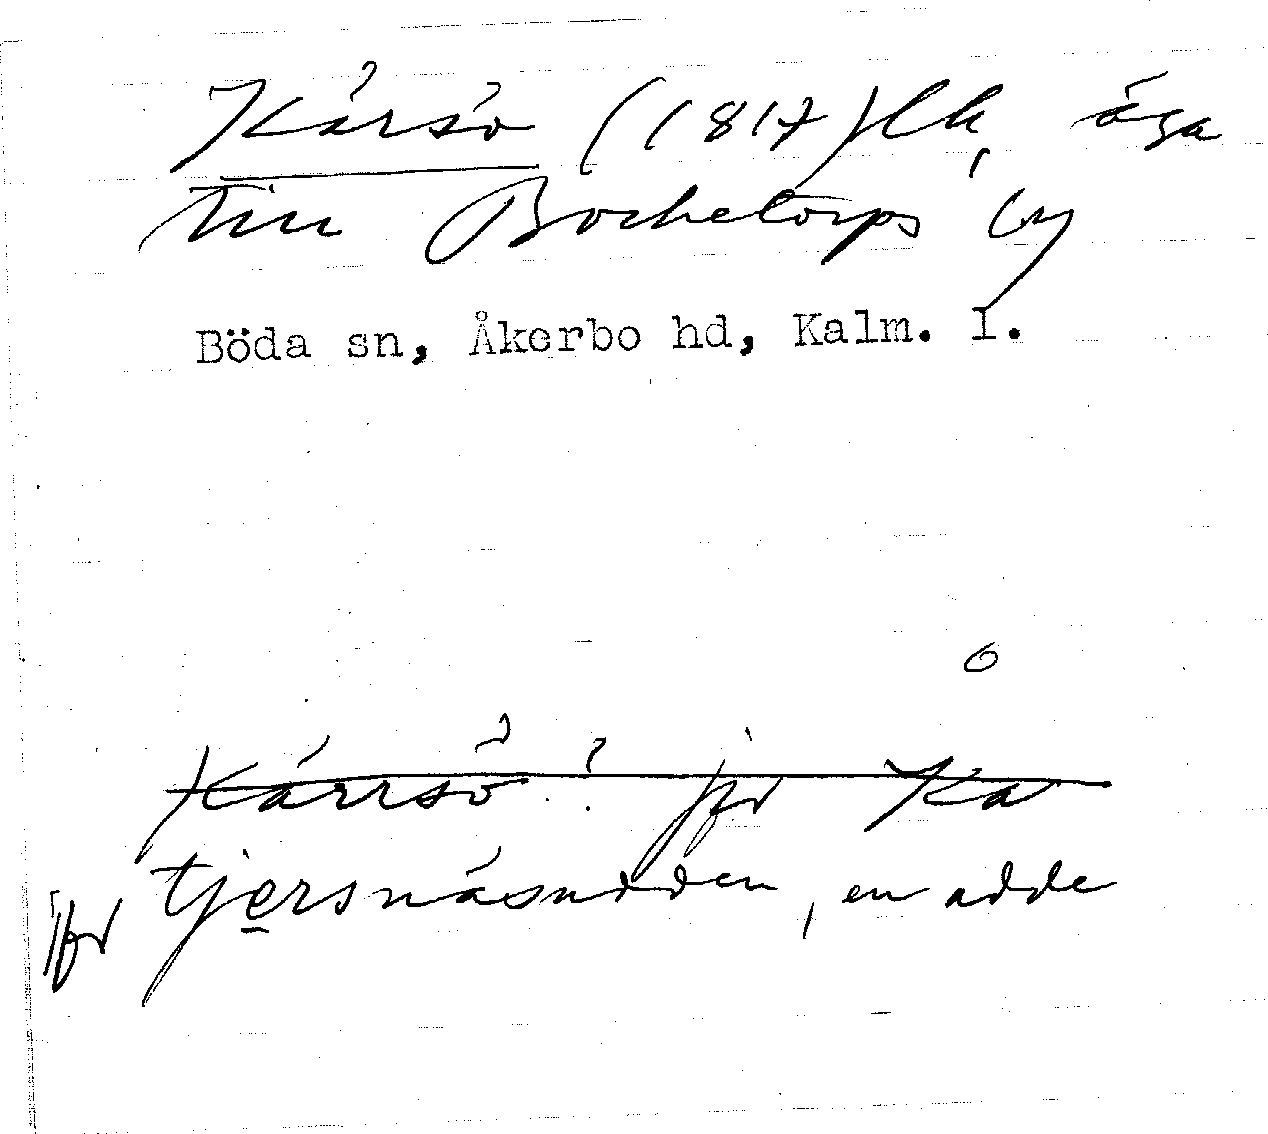 Kärsö (1817) lh, äga
till Bocketorps by
Böda sn, Åkerbo hd, Kalm. l.
6
Kärrsö? jfr Ka
jfr tjersnäsudden, en udde